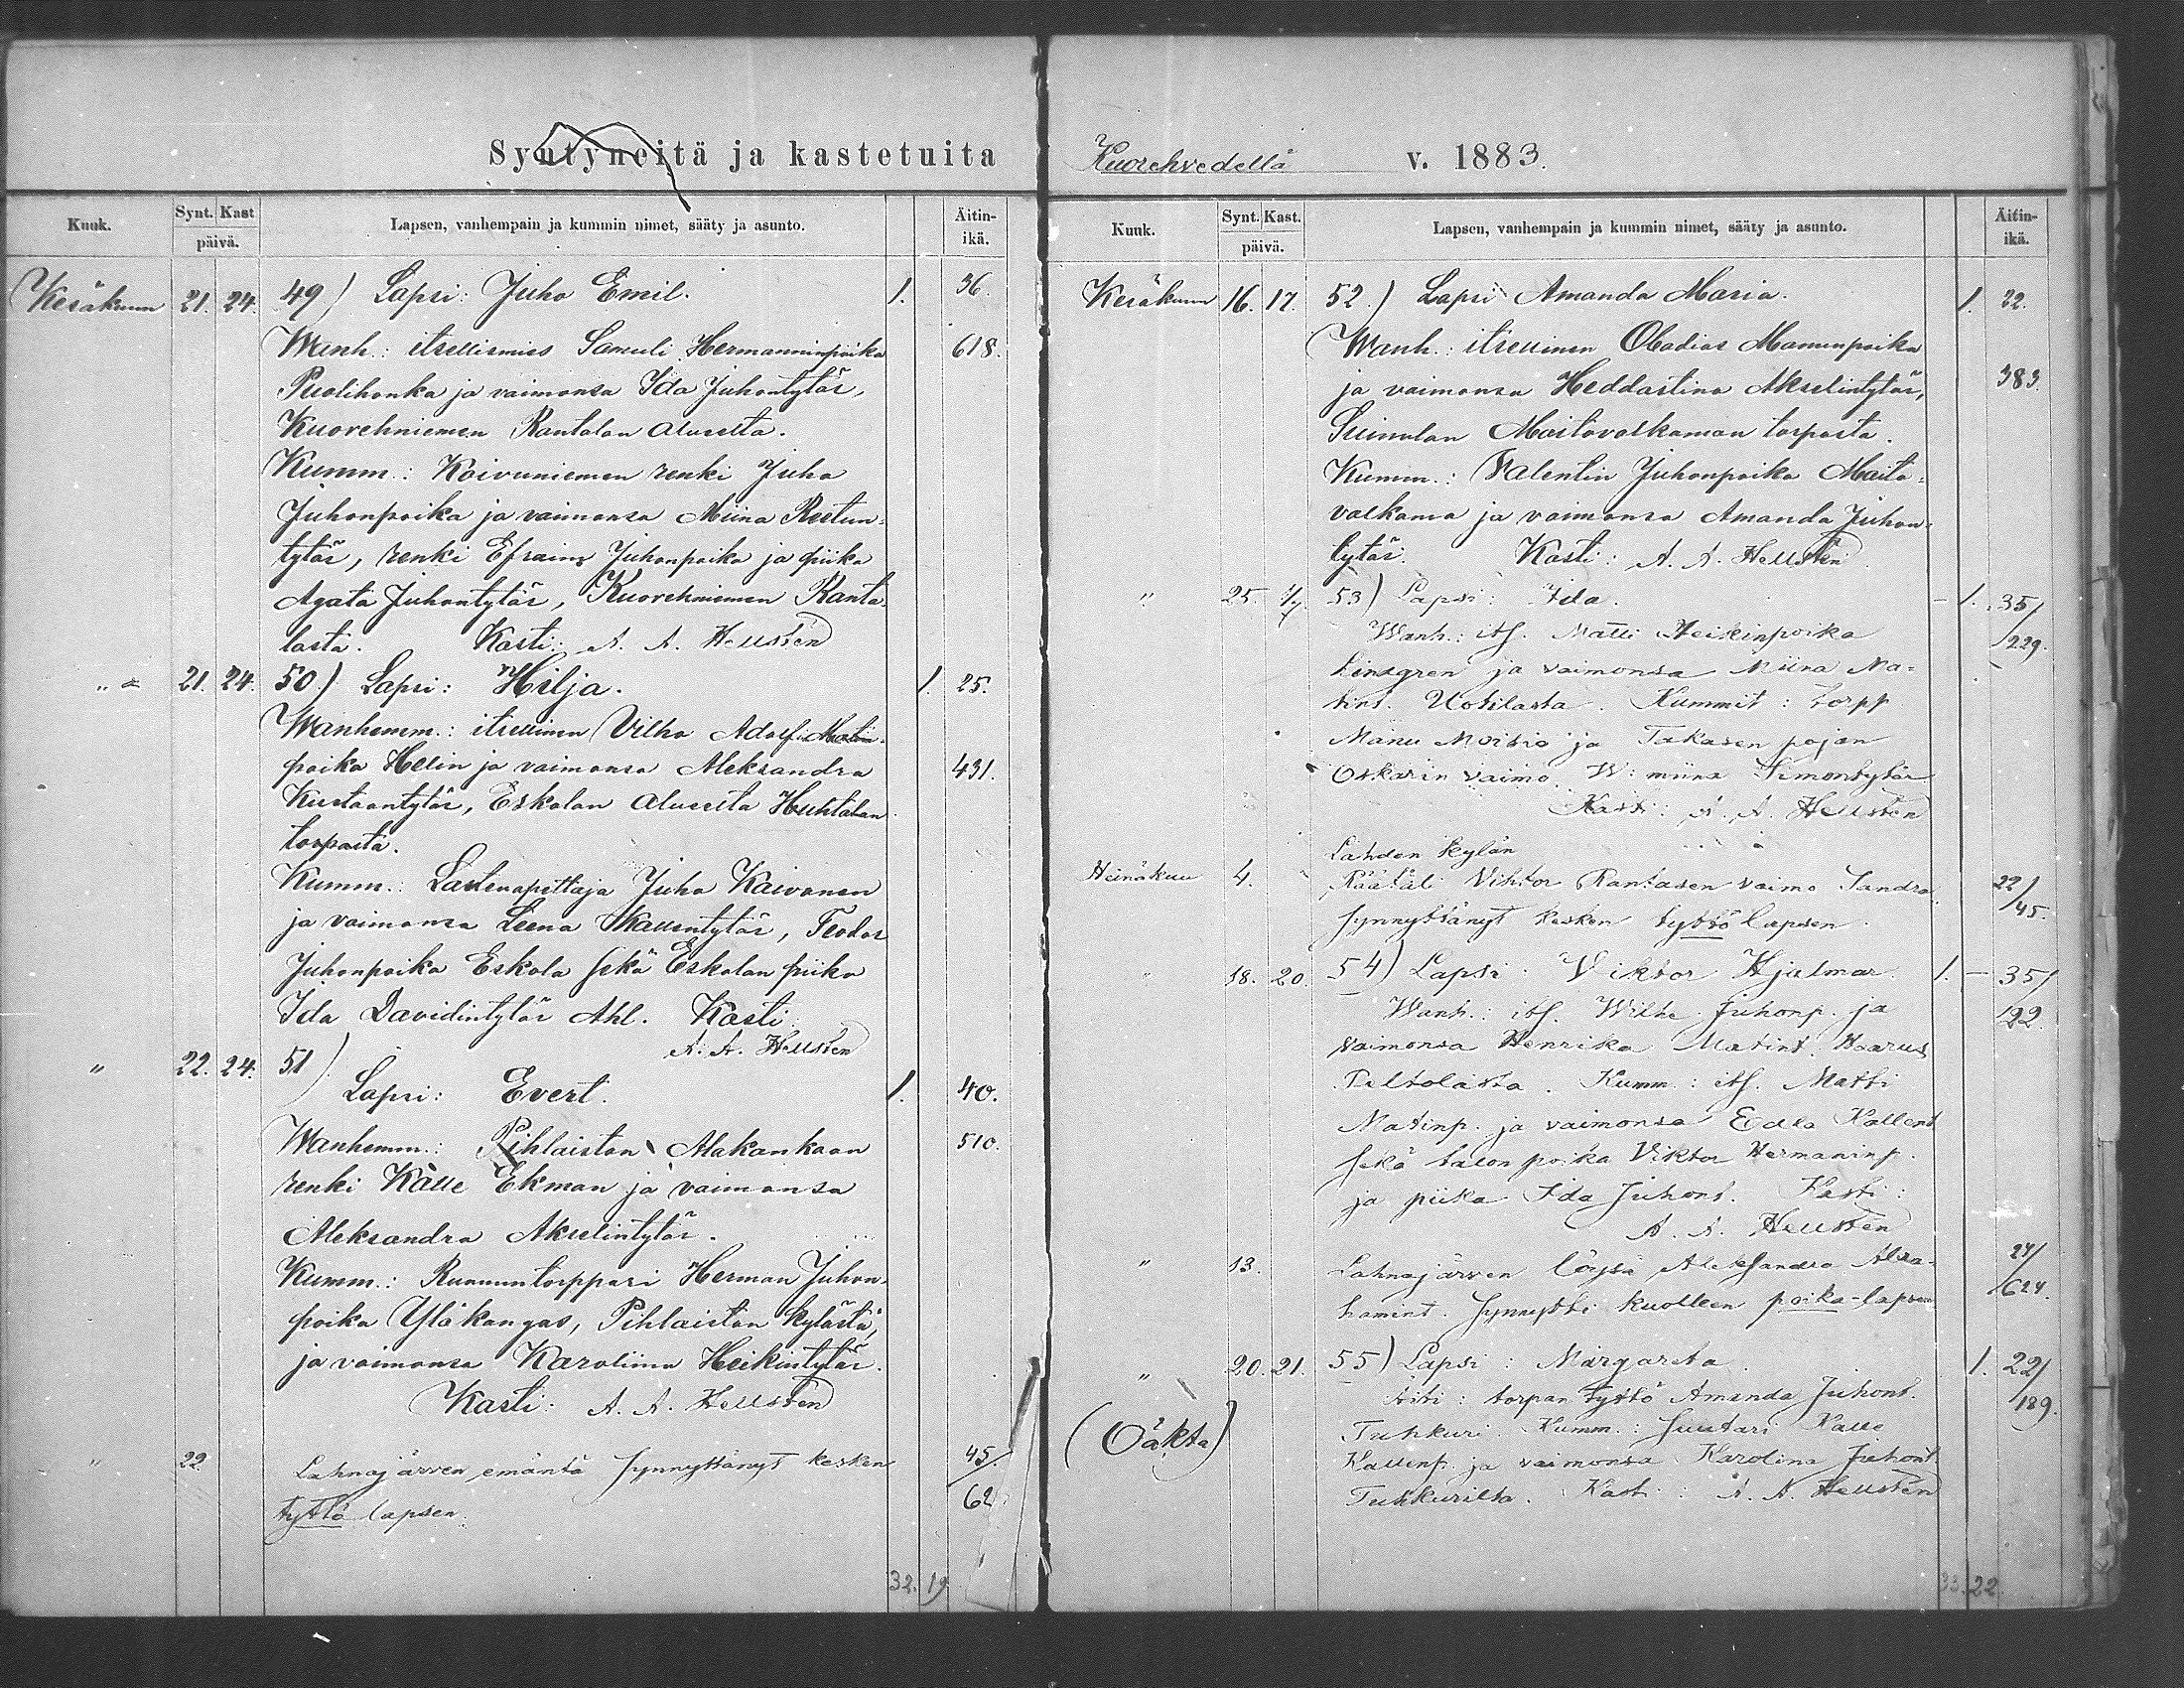 Syntyneitä ja kastetuita
Kuuk. Synt. Kast päivä. Lapsen, vanhempain ja kummin nimet, sääty ja asunto. Äitin-ikä.
Kesäkuun 21. 24. 49) Lapsi: Juho Emil. 1. 36.
Wanh.: itsellismies Samuli Hermanninpoika 618.
Puolihonka ja vaimonsa Ida Juhontytär,
Kuorehniemen Rantalan aluselta.
Kumm.: Koivuniemen renki Juho
Juhonpoika ja vaimonsa Miina Reetun-
tytär, renki Efraim Juhonpoika ja piika
Agata Juhontytär, Kuorehniemen Ranta-
lasta. Kasti: A. A. Hellstén
" 21. 24. 50) Lapsi: Hilja. 1. 25.
Wanhemm.: itsellinen Vilho Adolf Matin-
poika Helin ja vaimonsa Aleksandra 431.
Kustaantytär, Eskolan aluselta Huhtalan
torpasta.
Kumm.: Lastenopettaja Juho Kaivonen
ja vaimonsa Leena Kallentytär, Teodor
Juhonpoika Eskola sekä Eskolan piika
Ida Davidintytär Ahl. Kasti:
A. A. Hellstén
" 22. 24. 51)
Lapsi: Evert. 1. 40.
Wanhemm.: Pihlaiston Alakankaan 510.
renki Kalle Ekman ja vaimonsa
Aleksandra Akselintytär.
Kumm.: Ruununtorppari Herman Juhon-
poika Yläkangas, Pihlaiston kylästä,
ja vaimonsa Karoliina Heikintytär.
Kasti: A. A. Hellstén
" 22. Lahnajärven emäntä synnyttänyt kesken 45/
tyttö lapsen. 62.
32. 19
Kuorehvedellä v. 1883.
Kuuk. Synt. Kast. päivä. Lapsen, vanhempain ja kummin nimet, sääty ja asunto. Äitin-ikä.
Kesäkuun 16. 17. 52.) Lapsi Amanda Maria. 1. 22.
Wanh.: itsellinen Obadias Manunpoika
ja vaimonsa Heddastina Akselintytär, 383.
Suinulan Maitovalkaman torpasta.
Kumm.: Valentin Juhonpoika Maito-
valkama ja vaimonsa Amanda Juhon-
tytär. Kasti: A. A. Hellstén
" 25. 1/7 53) Lapsi: Ida. 1. 35/
Wanh.: its. Matti Heikinpoika /229.
Lindgren ja vaimonsa Miina Ma-
tint. Uotilasta. Kummit: torpp
Manu Moisio ja Takasen pojan
Oskarin vaimo W: miina Simontytär
Kasti: A. A. Hellstén
Lahden kylän
Heinäkuu 4. Räätäli Vihtor Rantasen vaimo Sandra 22/
synnyttänyt kesken tyttö lapsen. /45.
" 18. 20. 54) Lapsi: Viktor Hjalmar. 1. 35/
Wanh.: its. Wilhe. Juhonp. ja /22.
vaimonsa Henrika Matint. Haarus
Peltolasta. Kumm.: its. Matti
Matinp. ja vaimonsa Edla Kallent
sekä talon poika Viktor Hermaninp.
ja piika Ida Juhont. Kasti:
A. A. Hellstén
" 13. Lahnajärven löysä Aleksandra Abra- 24/
hamint. synnytti kuolleen poika-lapsen /624.
" 20. 21. 55) Lapsi: Margareta 1. 22/
Äiti: torpan tyttö Amanda Juhont. /189.
(Oäkta) Tuhkuri. Kumm.: suutari Kalle
Kallenp. ja vaimonsa Karolina Juhont
Tuhkurilta. Kast.: A. A. Hellstén
33. 22